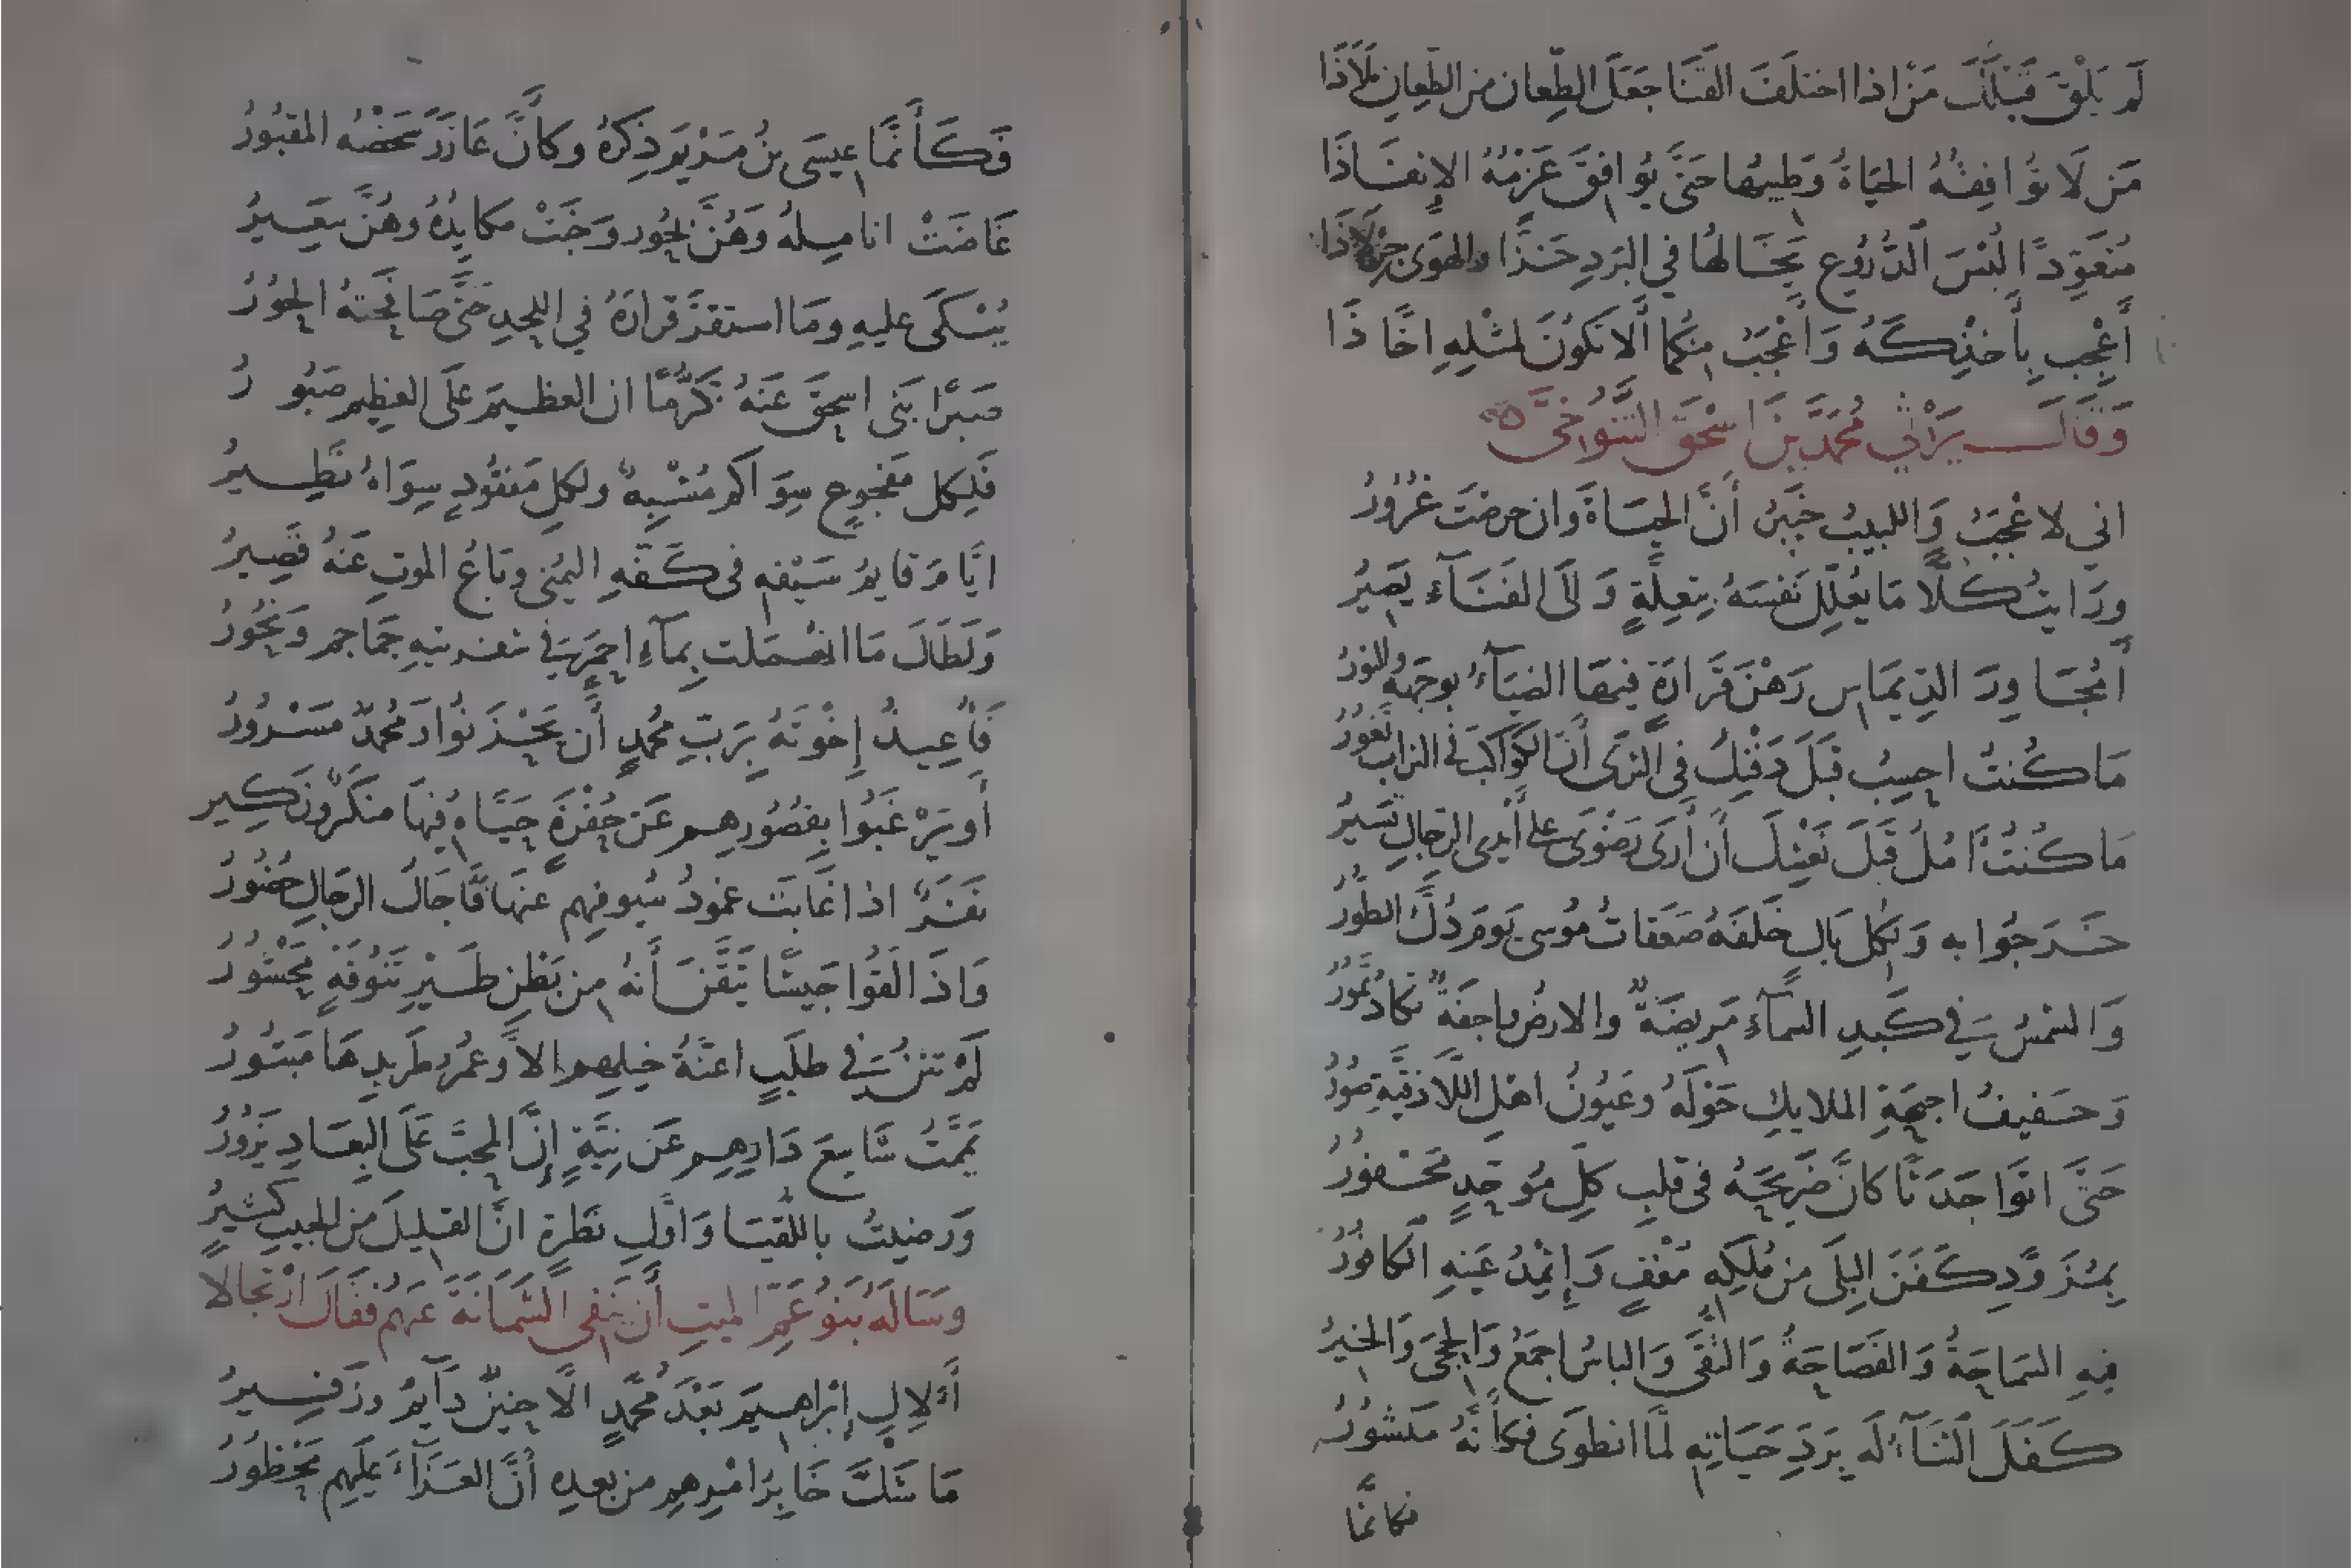 لَم يَلْقَ قَبْلَكَ مَنْ اذا اختلَفَ القَنَا جَعَلَ الطِّعان من الطِعانِ مَلَاذَا
مَن لَا تُوَافِقُهُ الحَيَاةُ وَطِيبُها حَتَّى يُوَافِقَ عَزْمُهُ الاِنفَاذَا
مُتَعَوِّدًا لُبْسَ الدُّرُوعِ يَخَالُهَا في البَردِ خَزًّا والهَوَى جِرِ لَاذَا
أَعْجِب بِأَخْذِكَهُ وَاَعْجَبُ مِنكُما أَلا تكُونَ لمثْلِهِ اخَّاذَا
وَقَالَ يَرْثي مُحَمَّدَ بنَ اسْحقَ التَّنُوخيَّ
اني لاعْجَبُ وَاللبيبُ خَبيرُ أَنَّ الحيَاةَ وَان حرصْتَ غُرُورُ
ورَايتُ كلًّا مَا يُعَلِّل نَفسَهُ بتَعِلّةٍ وَالَى الفَنَآءِ يَصِيرُ
أَمُجَاوِرَ الدِّيمَاسِ رَهْنَ قَرَارَةٍ فيهَا الضيَآءُ بوجهِهِ والنورُ
مَا كُنتُ احسِبُ قَبلَ دَفْنِكَ في الثرَى أَنَّ الكَوَاكبَ في التراب تَغورُ
مَا كُنتُ اَمُلُ قَبلَ نَعْشِكَ أَن أَرَى رَضْوَى على أَيدى الرّجالِ تَسيرُ
خَرَجُوا به وَلكلِ بَاكٍ خَلفَهُ صَعَقاتُ مُوسى يَومَ دُكَّ الطُّورُ
وَالشمسُ في كَبدِ السمآءِ مَرِيضَةٌ والارضُ واجفَةٌ تكادُ تمُورُ
وَحَفيفُ اجنحَةِ الملايكِ حَوْلَهُ وعَيُونُ اهْلِ اللَّاذقيَّةِ صُورُ
حَتَّى اتَوا جَدَثًا كانَّ ضَرِيحَهُ في قلبِ كلِّ مُوحّدٍ مَحْفورُ
بمُزَوَّدٍ كَفَنَ البِلَى من مُلكِهِ مُغْفٍ وَإِثمِدُ عَينِهِ الكافورُ
فيهِ السَماحَةُ وَالفَصَاحَةُ وَالتُقَى وَالباسُ اجمَعُ وَالحِجَى وَالخيرُ
كَفَلَ الثنَآءُ لَه بِرَدِّ حَيَاتِهِ لمَّا انطوَى فكأنَّهُ مَنشُورُ
فكانمَّا
فَكَأَنمَّا عيسَى بنُ مَرْيَم ذِكرُهُ وكَانَّ عَازَرَ شخصُهُ المقبُورُ
غَاضَتْ اناملُهُ وَهُنَّ بحُور وَخَبَتْ مكايدُهُ وهُنَّ سَعِيرُ
يُبْكَى عليهِ ومَا استقرَّ قرارُهُ في اللحدِ حَتَّى صَافحَتهُ الحُورُ
صَبرًا بَنى اسحقَ عَنهُ تكَرُّمًا ان العظيمَ عَلَى العظيمِ صَبُورُ
فَلِكلِ مَفجوعٍ سِوَاكُم مُشْبِهٌ ولكلِ مَفقُودٍ سِوَاهُ نَظِيرُ
ايَّامَ قايمُ سَيْفهِ في كَفّهِ اليُمنَى وبَاعُ الموتِ عَنهُ قَصِيرُ
وَلَطَالَ مَا انهَملَت بِمآءِ احمَرٍ في شفرتيهِ جَمَاجم وَنحُورُ
فَأُعِيذُ إِخْوَتَهُ بِرَبِّ مُحمدٍ أَن يَحْزَنُوا وَمُحمَّدٌ مَسْرُورُ
أَو يَرْغَبُوا بِقصُورِهِم عَن حُفْرَةٍ حَيَّاهُ فيهَا مُنكَرٌ ونَكِير
نَفَرٌ اذا غَابَت غمُودُ سُيوفِهِم عَنهَا فَآجَالُ الرجالِ حضُورُ
وَاذَا لَقُوا جَيشًا تَيَقَّنَ أَنهُ من بَطْنِ طَيْرِ تَنُوفَةٍ مَحْشُورُ
لَمْ تُثنَ في طلَبٍ اعنَّةُ خيلِهِم الاَّ وعمُرُ طَريدِهَا مَبتُورُ
يَمَّمتُ شَاسِعَ دَارِهِم عَن نيَّةٍ إِنَّ المحبَّ عَلَى البِعَادِ يَزُورُ
وَرَضيتُ باللُّقيَا وَاَوَّلِ نَظرةٍ انَّ القليلَ من الحبيبِ كثيرُ
وسَاَلَهُ بَنوُ عَمِّ الميتِ أَن يَنفي الشَّمَاتَةَ عَنهُم فَقَالَ ارْتجالا
أَلِالِ إِبْرَاهيمَ بَعْدَ مُحمَّدٍ الَّا حنِينٌ دآيمُ وزَفيرُ
مَا شَكَّ خَابرُ امْرِهِم من بعدِهِ أَنَّ العَزَآءَ عَليهِم مَحْظُورُ